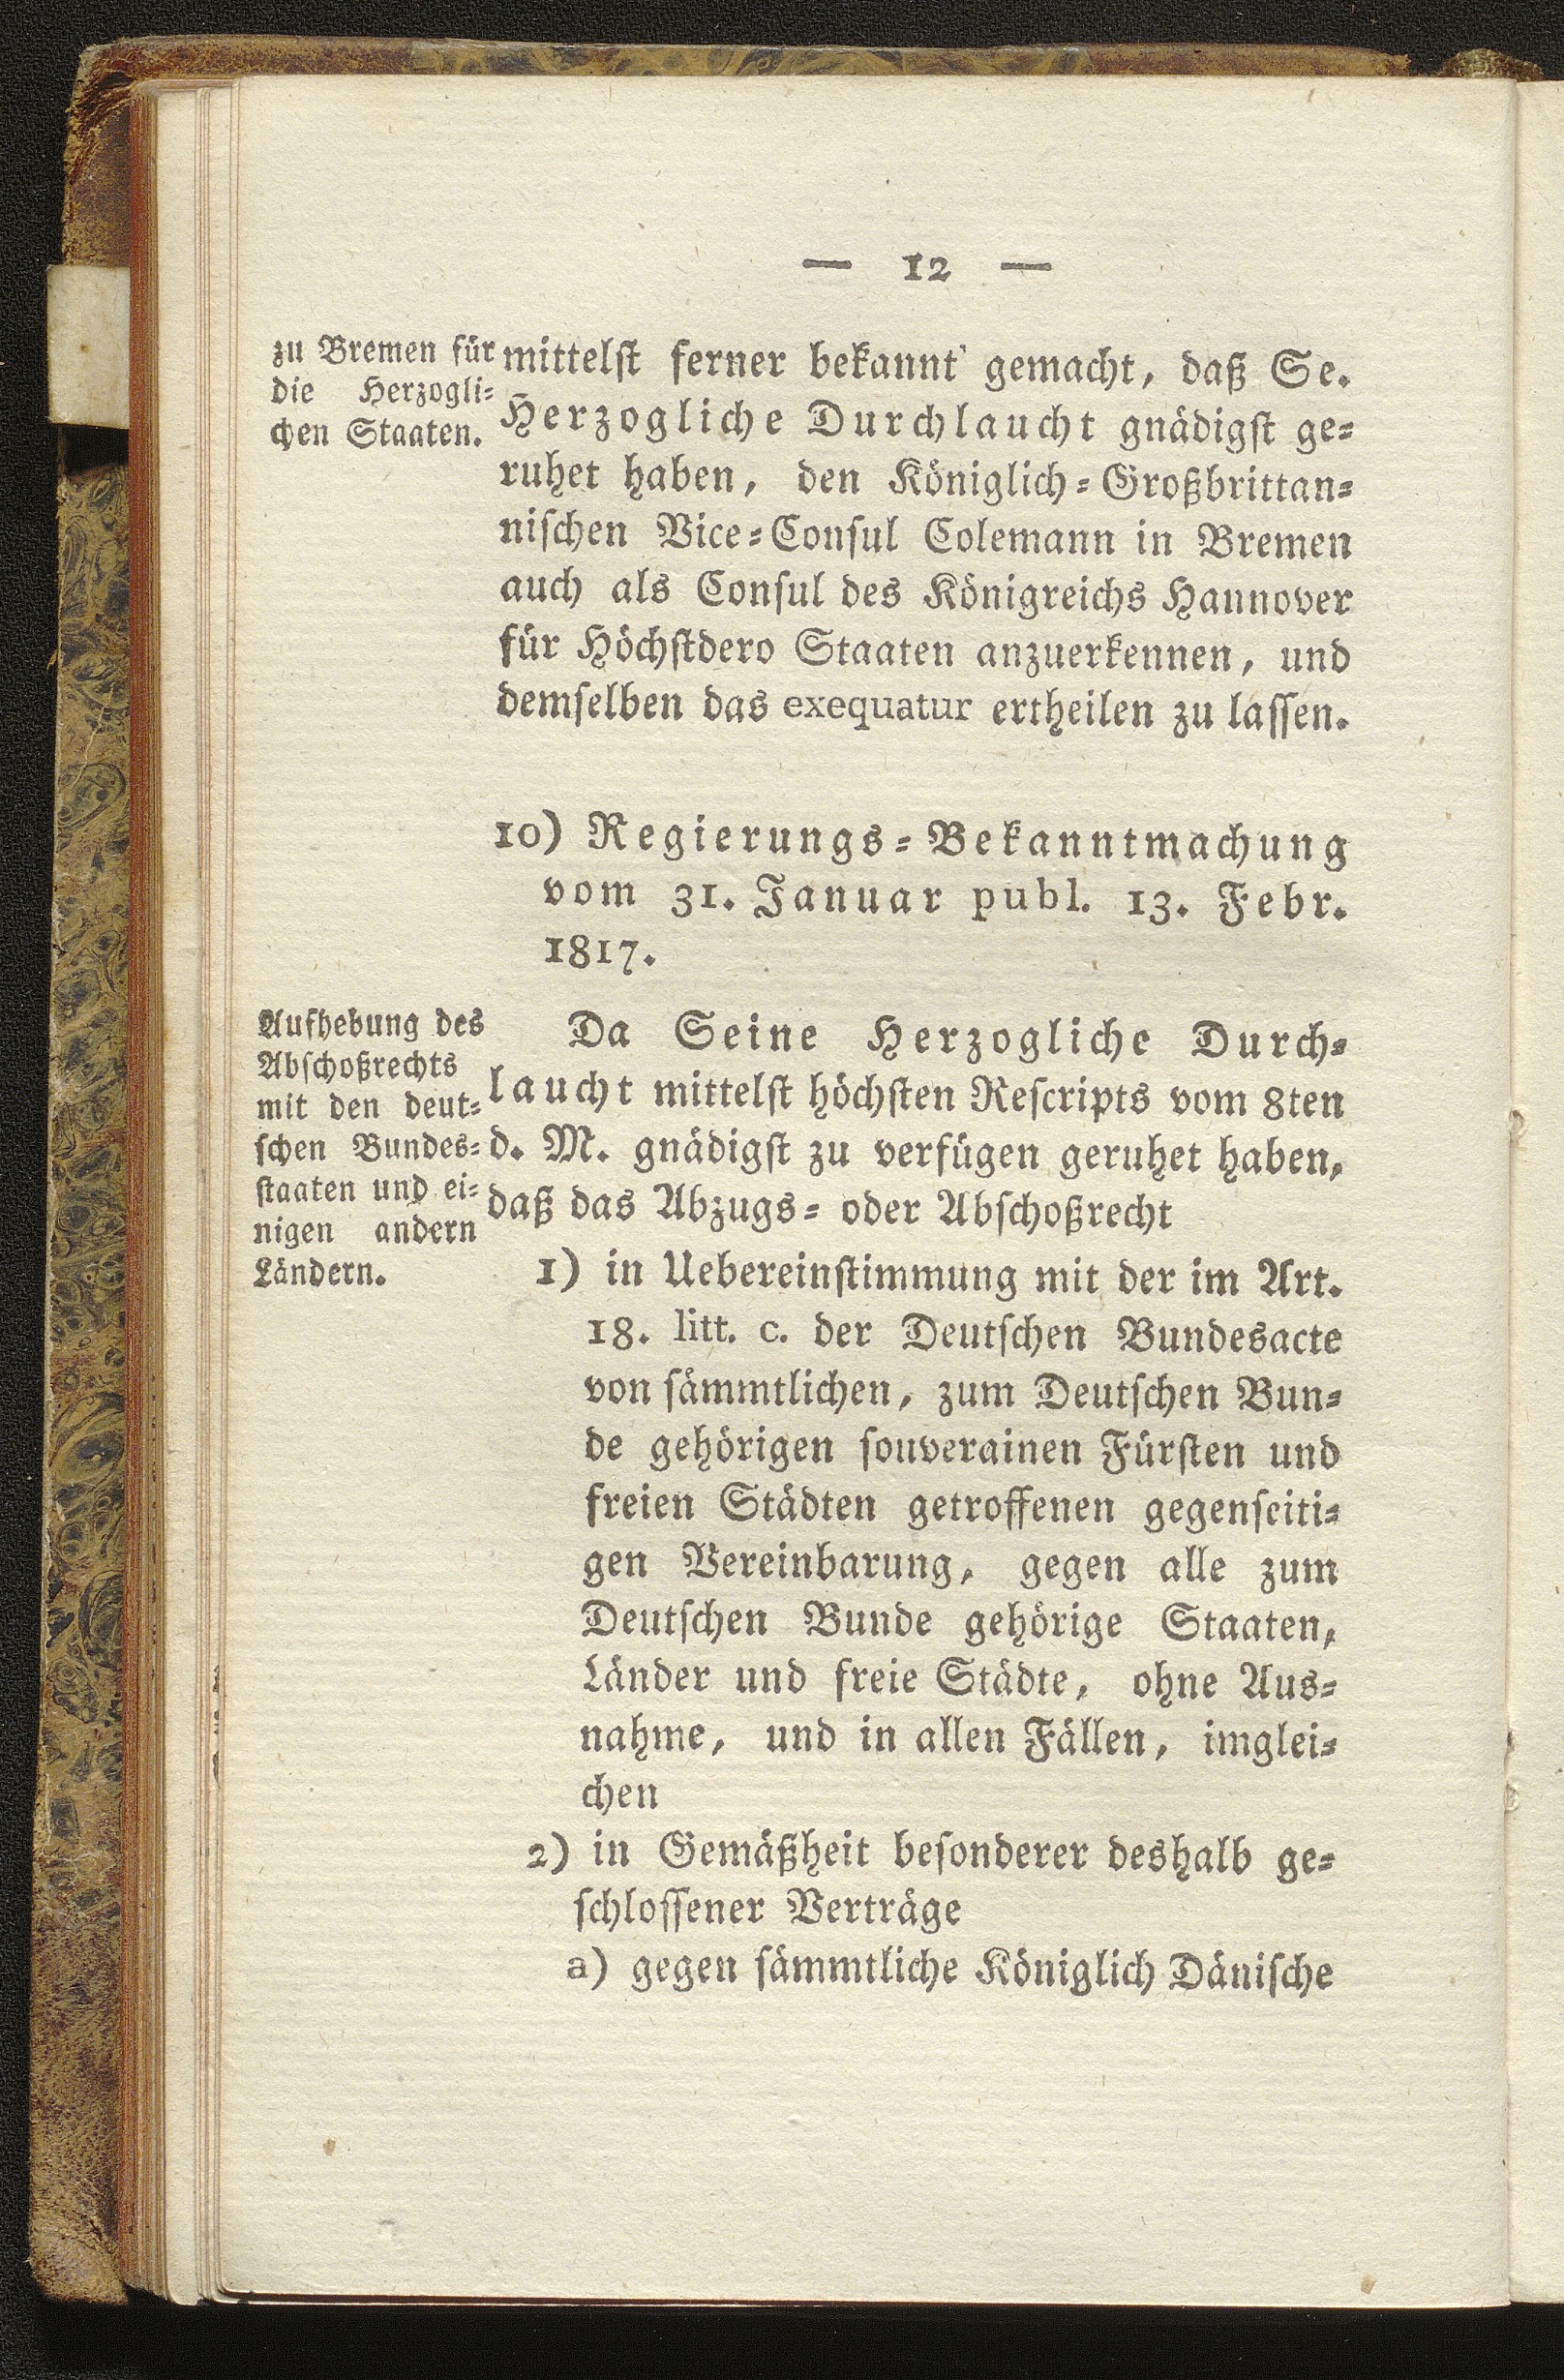 — 12 —
zu Bremen für
die Herzogli-
chen Staaten.
mittelst ferner bekannt gemacht, daß Se.
Herzogliche Durchlaucht gnädigst ge-
ruhet haben, den Königlich-Großbrittan-
nischen Vice-Consul Colemann in Bremen
auch als Consul des Königreichs Hannover
für Höchstdero Staaten anzuerkennen, und
demselben das exequatur ertheilen zu lassen.
10) Regierungs-Bekanntmachung
vom 31. Januar publ. 13. Febr.
1817.
Aufhebung des
Abschoßrechts
mit den deut-
schen Bundes-
staaten und ei-
nigen andern
Ländern.
Da Seine Herzogliche Durch-
laucht mittelst höchsten Rescripts vom 8ten
d. M. gnädigst zu verfügen geruhet haben,
daß das Abzugs- oder Abschoßrecht
1) in Uebereinstimmung mit der im Art.
18. litt. c. der Deutschen Bundesacte
von sämmtlichen, zum Deutschen Bun-
de gehörigen souverainen Fürsten und
freien Städten getroffenen gegenseiti-
gen Vereinbarung, gegen alle zum
Deutschen Bunde gehörige Staaten,
Länder und freie Städte, ohne Aus-
nahme, und in allen Fällen, imglei-
chen
2) in Gemäßheit besonderer deshalb ge-
schlossener Verträge
a) gegen sämmtliche Königlich Dänische